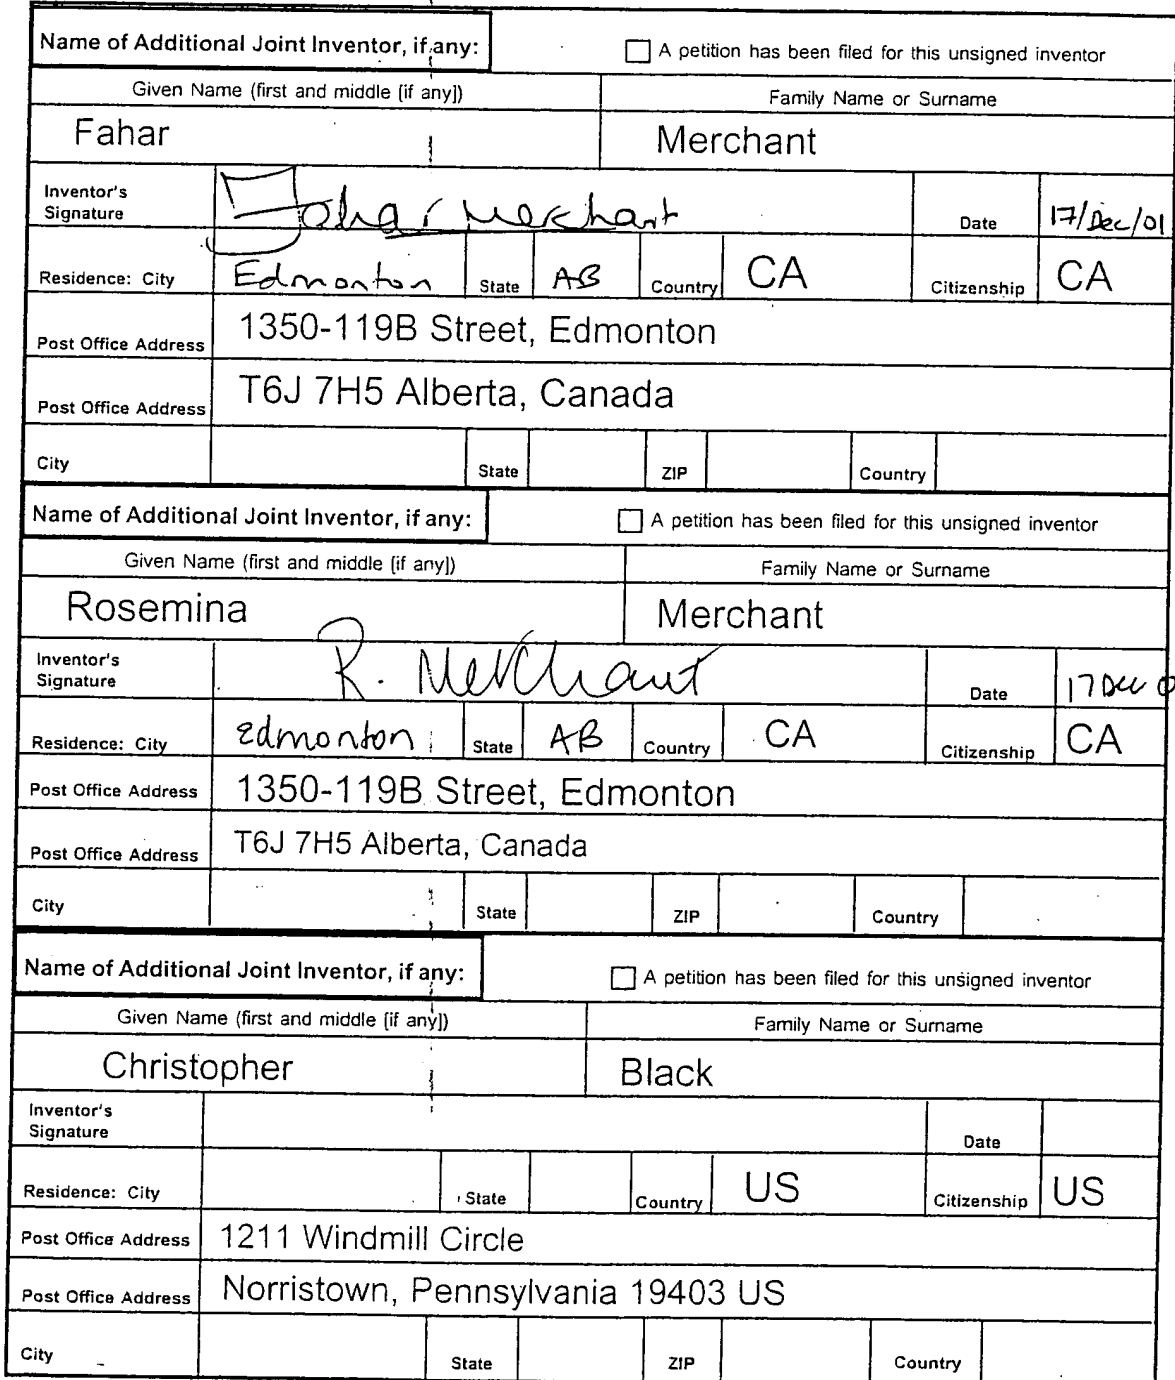 Name of Additional Joint Inventor, if any: A petition has been filed for this unsigned inventor
Given Name (first and middle [if any]) Family Name or Surname
Fahar Merchant
Inventor's Signature Fahar Merchant Date 17/Dec/01
Residence: City Edmonton State AB Country CA Citizenship CA
Post Office Address 1350-119B Street, Edmonton
Post Office Address T6J 7H5 Alberta, Canada
City State ZIP Country
Name of Additional Joint Inventor, if any: A petition has been filed for this unsigned inventor
Given Name (first and middle [if any]) Family Name or Surname
Rosemina Merchant
Inventor's Signature R. Merchant Date 17 Dec 0
Residence: City Edmonton State AB Country CA Citizenship CA
Post Office Address 1350-119B Street, Edmonton
Post Office Address T6J 7H5 Alberta, Canada
City State ZIP Country
Name of Additional Joint Inventor, if any: A petition has been filed for this unsigned inventor
Given Name (first and middle [if any]) Family Name or Surname
Christopher Black
Inventor's Signature Date
Residence: City State Country US Citizenship US
Post Office Address 1211 Windmill Circle
Post Office Address Norristown, Pennsylvania 19403 US
City State ZIP Country